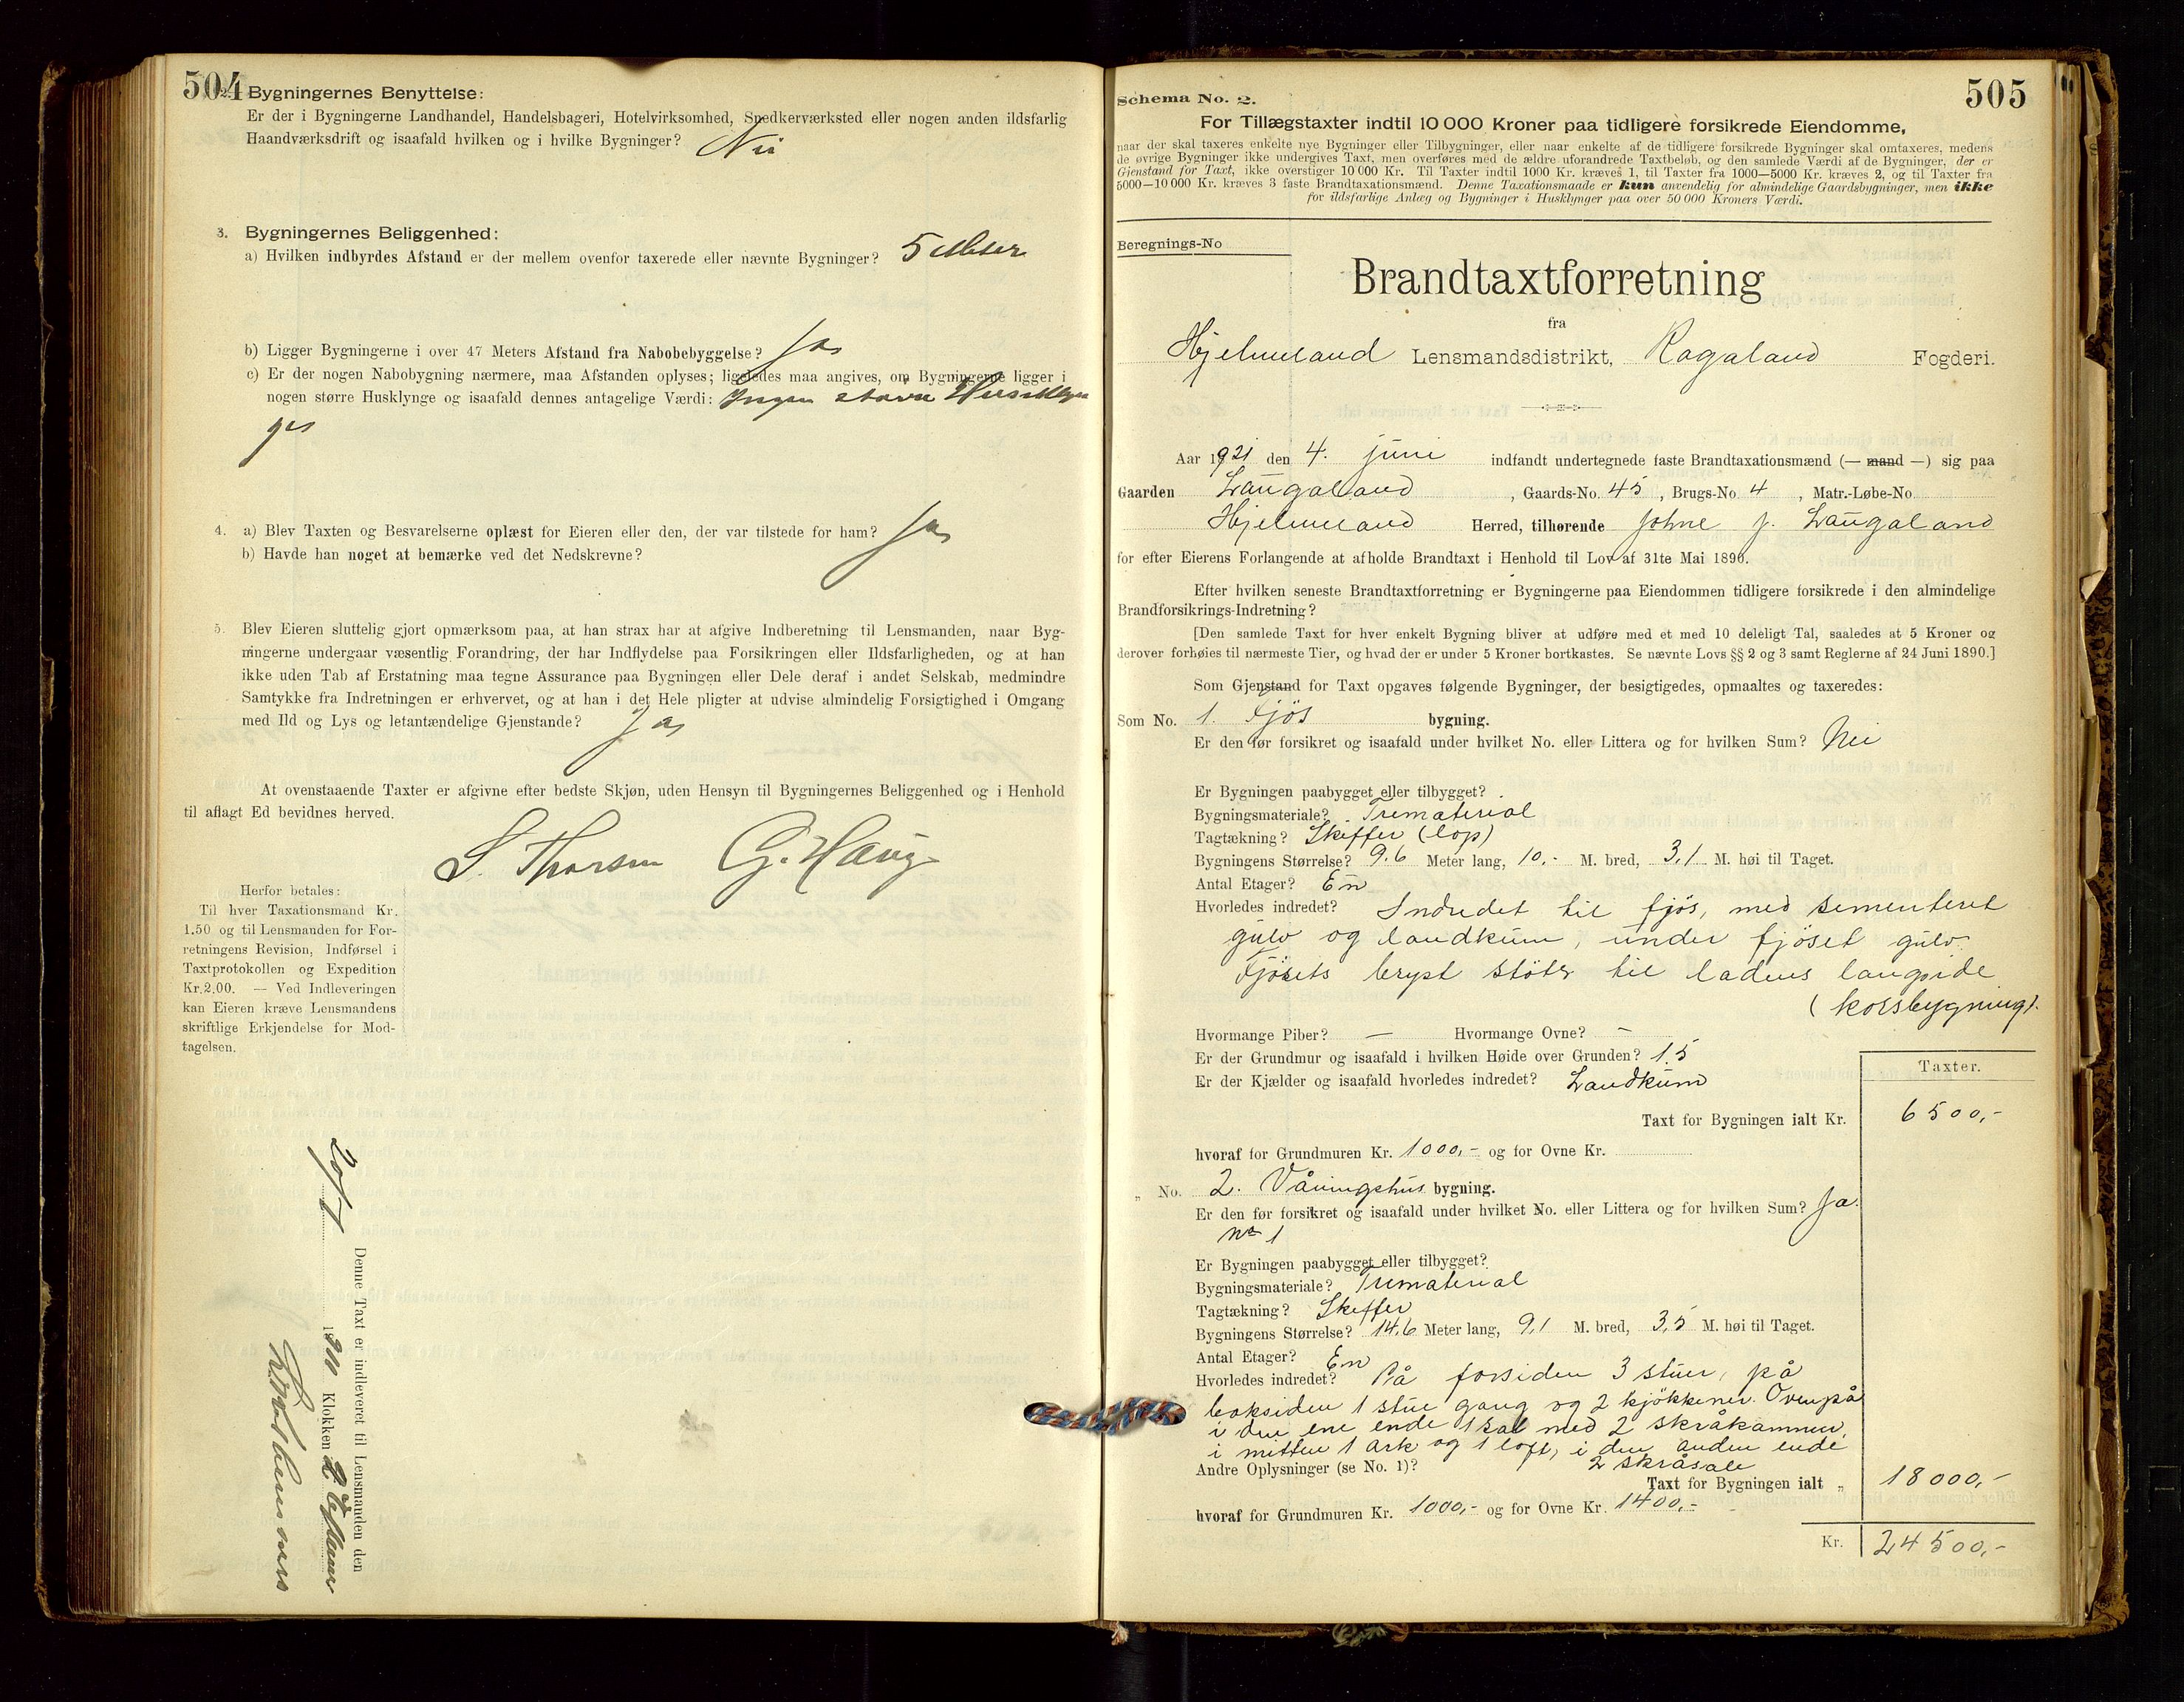 504
2. Bygningernes Benyttelse:
Er der i Bygningerne Landhandel, Handelsbageri, Hotelvirksomhed, Snedkerværksted eller nogen anden ildsfarlig
Haandværksdrift og isaafald hvilken og i hvilke Bygninger? Nei
3. Bygningernes Beliggenhed:
a) Hvilken indbyrdes Afstand er der mellem ovenfor taxerede eller nævnte Bygninger? 5 Meter
b) Ligger Bygningerne i over 47 Meters Afstand fra Nabobebyggelse? Ja
c) Er der nogen Nabobygning nærmere, maa Afstanden oplyses; ligeledes maa angives, om Bygningerne ligger i
nogen større Husklynge og isaafald dennes antagelige Værdi: Ingen større Husklyn
ge
4. a) Blev Taxten og Besvarelserne oplæst for Eieren eller den, der var tilstede for ham? Ja
b) Havde han noget at bemærke ved det Nedskrevne?
5. Blev Eieren sluttelig gjort opmærksom paa, at han strax har at afgive Indberetning til Lensmanden, naar Byg-
ningerne undergaar væsentlig Forandring, der har Indflydelse paa Forsikringen eller Ildsfarligheden, og at han
ikke uden Tab af Erstatning maa tegne Assurance paa Bygningen eller Dele deraf i andet Selskab, medmindre
Samtykke fra Indretningen er erhvervet, og at han i det Hele pligter at udvise almindelig Forsigtighed i Omgang
med Ild og Lys og letantændelige Gjenstande? Ja
At ovenstaaende Taxter er afgivne efter bedste Skjøn, uden Hensyn til Bygningernes Beliggenhed og i Henhold
til aflagt Ed bevidnes herved.
S. Thorsen G. Haug
Herfor betales:
Til hver Taxationsmand Kr.
1.50 og til Lensmanden for For-
retningens Revision, Indførsel i
Taxtprotokollen og Expedition
Kr. 2,00. — Ved Indleveringen
kan Eieren kræve Lensmandens
skriftlige Erkjendelse for Mod-
tagelsen.
Denne Taxt er indleveret til Lensmanden den
Klokken 2
505
Schema No. 2.
For Tillægstaxter indtil 10 000 Kroner paa tidligere forsikrede Eiendomme,
naar der skal taxeres enkelte nye Bygninger eller Tilbygninger, eller naar enkelte af de tidligere forsikrede Bygninger skal omtaxeres, medens
de øvrige Bygninger ikke undergives Taxt, men overføres med de ældre uforandrede Taxtbeløb, og den samlede Værdi af de Bygninger, der er
Gjenstand for Taxt, ikke overstiger 10 000 Kr. Til Taxter indtil 1000 Kr. kræves 1, til Taxter fra 1000—5000 Kr. kræves 2, og til Taxter fra
5000—10 000 Kr. kræves 3 faste Brandtaxationsmænd. Denne Taxationsmaade er kun anvendelig for almindelige Gaardsbygninger, men ikke
for ildsfarlige Anlæg og Bygninger i Husklynger paa over 50 000 Kroners Værdi.
Beregnings-No
Brandtaxtforretning
fra
Hjelmeland Lensmandsdistrikt, Rogaland Fogderi.
Aar 1921 den 4. juni indfandt undertegnede faste Brandtaxationsmænd (— mand —) sig paa
Gaarden Laugaland, Gaards-No. 45, Brugs-No. 4, Matr.-Løbe-No.
Hjelmeland Herred, tilhørende Johne J. Laugaland
for efter Eierens Forlangende at afholde Brandtaxt i Henhold til Lov af 31te Mai 1890.
Efter hvilken seneste Brandtaxtforretning er Bygningerne paa Eiendommen tidligere forsikrede i den almindelige
Brandforsikrings-Indretning?
[Den samlede Taxt for hver enkelt Bygning bliver at udføre med et med 10 deleligt Tal, saaledes at 5 Kroner og
derover forhøies til nærmeste Tier, og hvad der er under 5 Kroner bortkastes. Se nævnte Lovs §§ 2 og 3 samt Reglerne af 24 Juni 1890.]
Som Gjenstand for Taxt opgaves følgende Bygninger, der besigtigedes, opmaaltes og taxeredes:
Som No. 1. Fjös bygning.
Er den før forsikret og isaafald under hvilket No. eller Littera og for hvilken Sum? Nei
Er Bygningen paabygget eller tilbygget?
Bygningsmateriale? Trematerial
Tagtækning? Skiffer (lop)
Bygningens Størrelse? 9.6 Meter lang, 10,- M. bred, 3,1 M. høi til Taget.
Antal Etager? En
Hvorledes indredet? Indredet til fjös, med sementeret
gulv og landkum, under fjöset gulv.
Fjösets bryst stöter til ladens langside
(korsbygning).
Hvormange Piber? — Hvormange Ovne? —
Er der Grundmur og isaafald i hvilken Høide over Grunden? 1.5
Er der Kjælder og isaafald hvorledes indredet? Landkum
Taxter.
Taxt for Bygningen ialt Kr. 6500,-
hvoraf for Grundmuren Kr. 1000,- og for Ovne Kr.
" No. 2. Våningshus bygning.
Er den før forsikret og isaafald under hvilket No. eller Littera og for hvilken Sum? Ja.
No 1
Er Bygningen paabygget eller tilbygget?
Bygningsmateriale? Trematerial
Tagtækning? Skiffer
Bygningens Størrelse? 14,6 Meter lang, 9,1 M. bred, 3,5 M. høi til Taget.
Antal Etager? En
Hvorledes indredet? På forsiden 3 stuer, på
baksiden 1 stue gang og 2 kjökkener. Ovenpå
i den ene ende 1 sal med 2 skråkammer,
i mitten 1 ark og 1 loft, i den anden ende
Andre Oplysninger (se No. 1)? 2 skråsale
Taxt for Bygningen ialt " 18000,-
hvoraf for Grundmuren Kr. 1000,- og for Ovne Kr. 1400,-
Kr. 24500,-